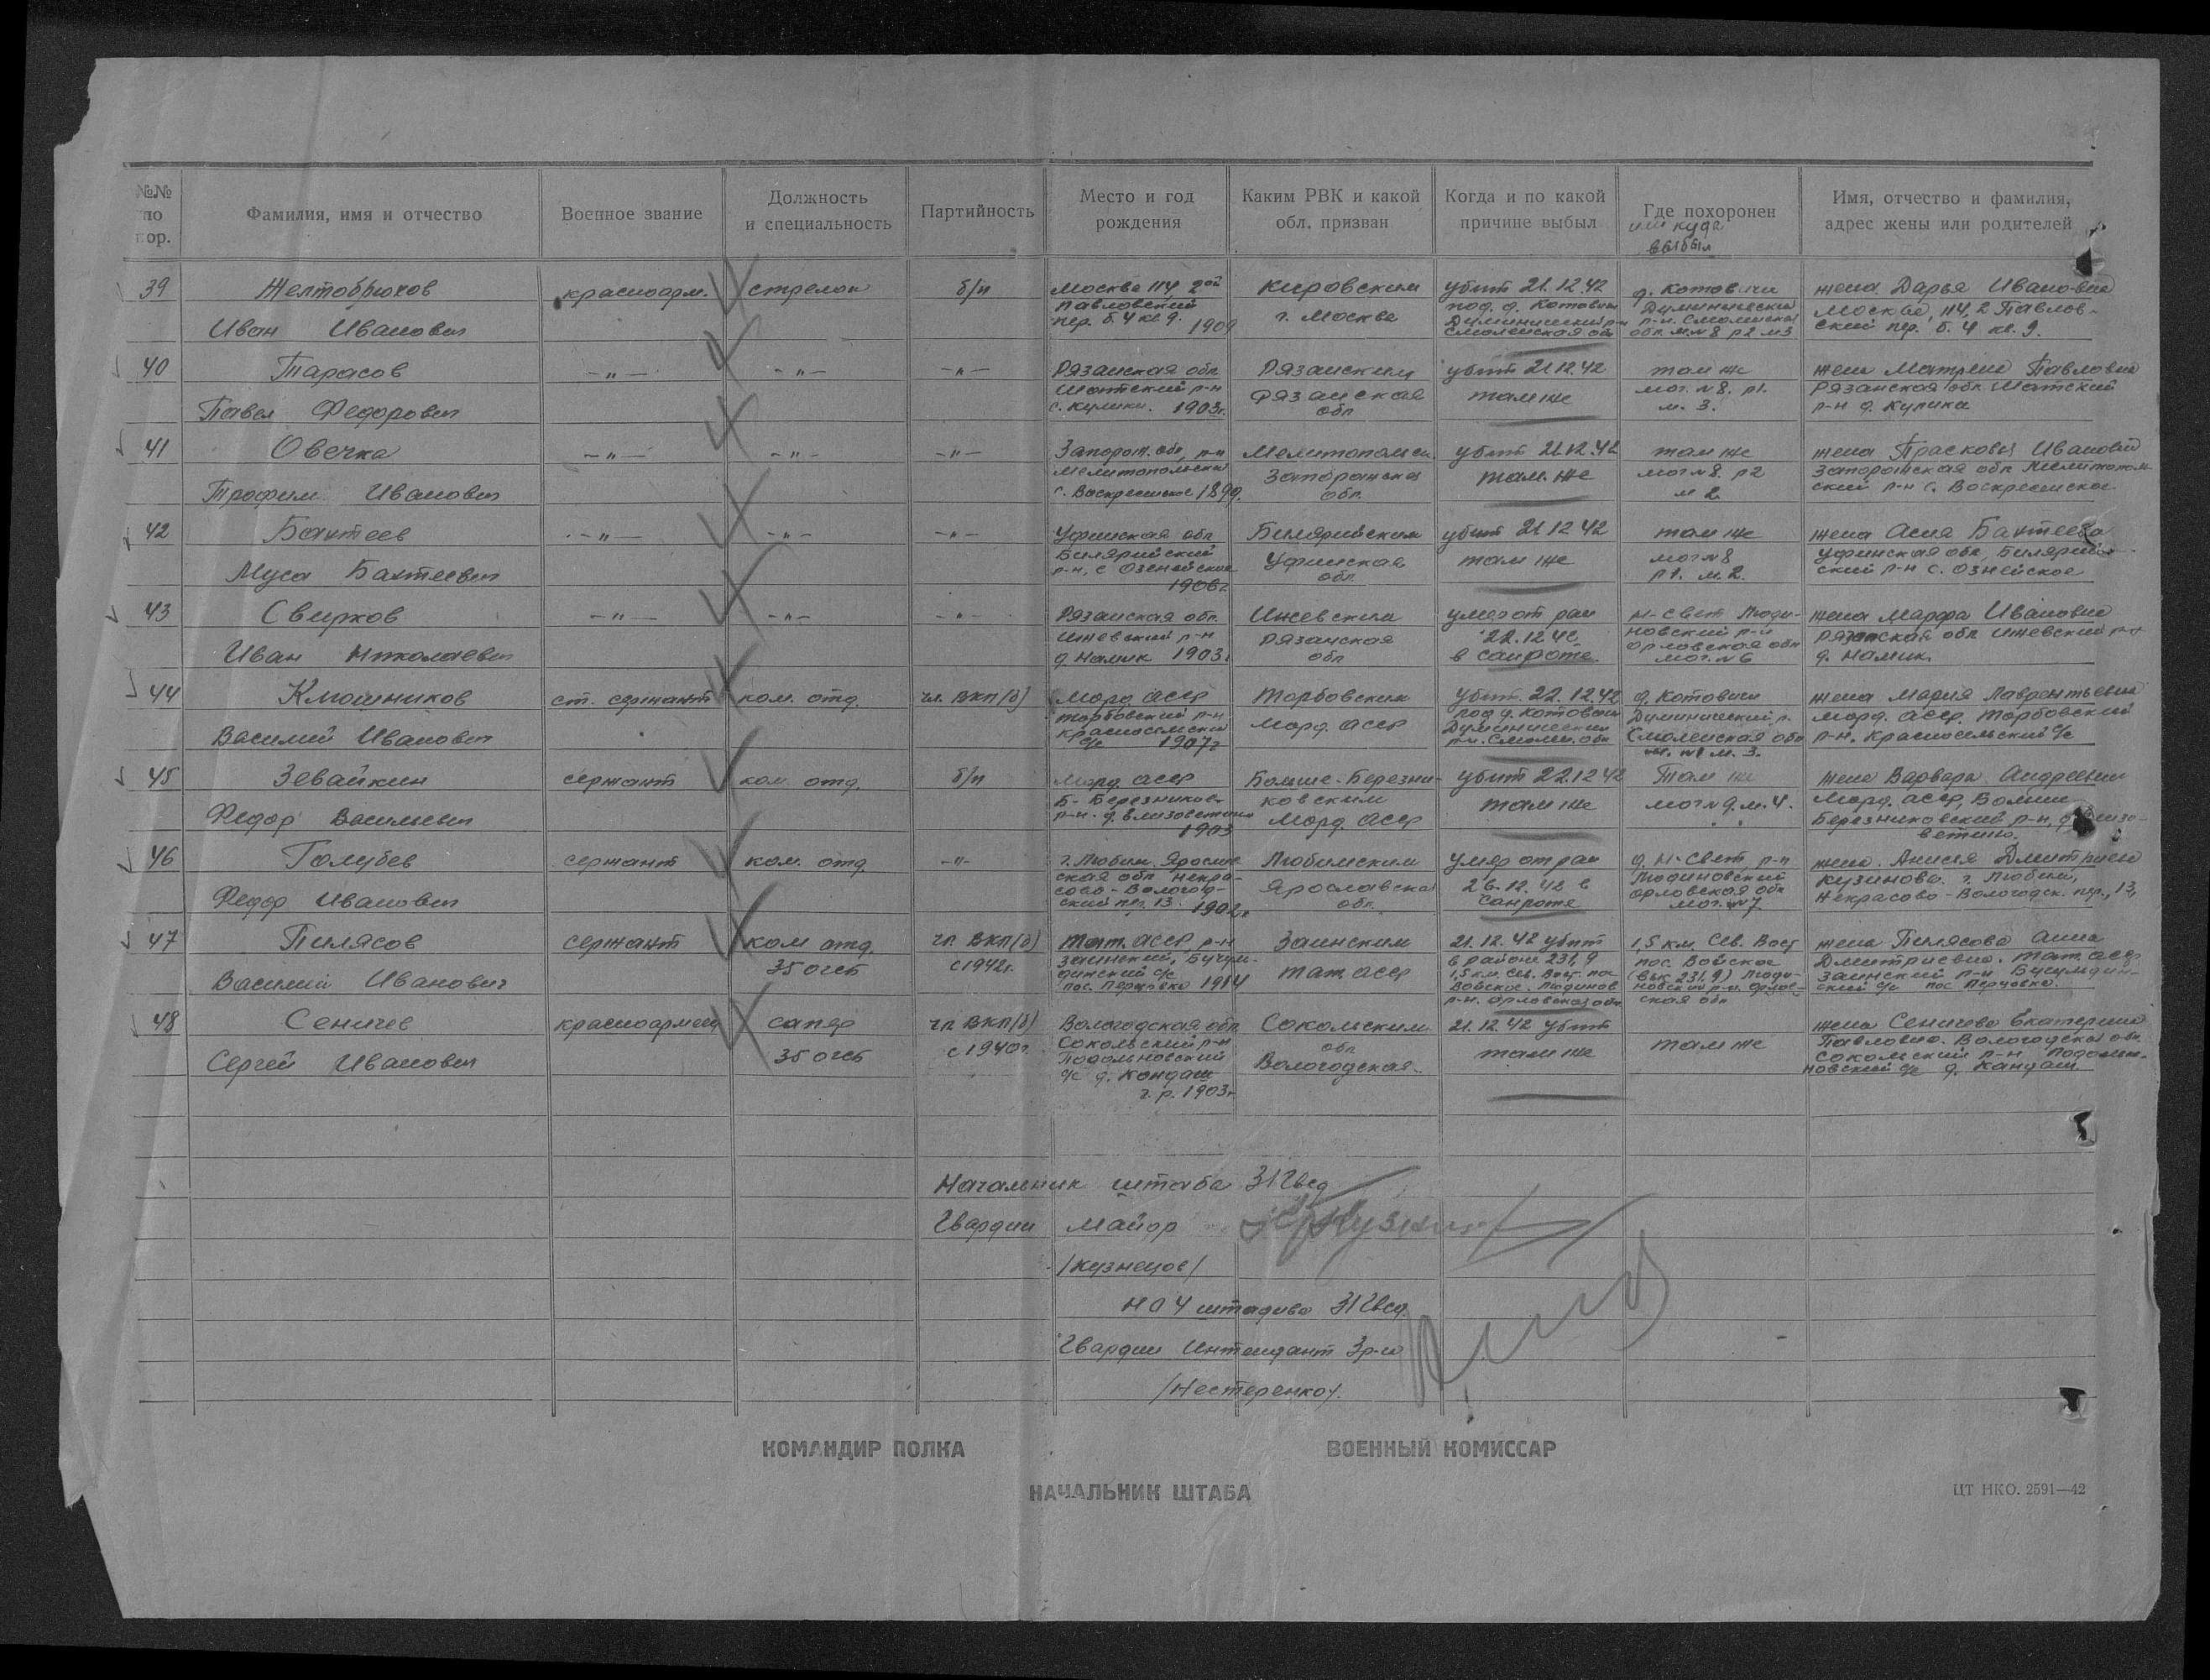 №№ по пор.
Фамилия, имя и отчество
Военное звание
Должность и специальность
Партийность
Место и год рождения
Каким РВК и какой обл. призван
Когда и по какой причине выбыл
Где похоронен
или куда выбыл
Имя, отчество и фамилия, адрес жены или родителей
39
Желтобрюхов
Иван Иванович
красноарм.
стрелок
б/п
Москва 114, 2ой
Павловский
пер. б. 4 кв 9.
1909
Кировским
г. Москва
убит 21.12.42
под д. Котовичи
Думиничский р-н
Смоленская обл
д. Котовичи
Думиничский
р-н. Смоленская
обл. м. №8 р2 м3
жена Дарья Ивановна
Москва, 114, 2 Павлов-
ский пер. б. 4 кв. 9.
40
Тарасов
Павел Федорович
—"—
-"-
-"-
Рязанская обл
Шатский р-н
с. Кулики. 1903г.
Рязанским
Рязанская
обл
убит 21.12.42
там же
там же
мог. №8. р1.
м. 3.
жена Матрена Павловна
Рязанская обл. Шатский
р-н д. Кулики
41
Овечка
Трофим Иванович
—"—
-"-
-"-
Запорож. обл, р-н
Мелитопольский
с. Воскресенское 1899.
Мелитопольск.
Запорожска
обл.
убит 21.12.42
там же
там же
мог №8. р2
м 2.
жена Прасковья Ивановн
Запорожская обл Мелитополь
ский р-н с. Воскресенское
42
Бахтеев
Муса Бахтеевич
—"—
-"-
-"-
Уфинская обл
Билярийский
р-н, с Озенейское
1906г
Билярийским
Уфинская
обл
убит 21.12.42
там же
там же
мог №8
р1. м. 2.
жена Асия Бахтеева
Уфинская обл, Билярий-
ский р-н с. Ознейское
43
Свирков
Иван Николаевич
—"—
-"-
-"-
Рязанская обл.
Ижевский р-н
д Намик 1903г
Ижевским
Рязанская
обл
умер от ран
22.12.42
в санроте
Н-Свет Люди-
новский р-н
Орловская обл
мог. №6
жена Марфа Ивановна
Рязанская обл Ижевский р-н
д. Намик.
44
Клюшников
Василий Иванович
ст. сержант
ком. отд.
чл. ВКП(б)
Морд. АССР
Торбовский р-н
Красносельский
с/с 1907г
Торбовским
Морд. АССР
убит 22.12.42
под д. Котовичи
Думиничский
р-н. Смолен. обл
д. Котовичи
Думиничский р.
Смоленская обл
м. 3.
жена Мария Лаврентьевна
Морд. АССР. Торбовский
р-н. Красносельский с/с
45
Зевайкин
Федор Васильевич
сержант
ком. отд.
б/п
Морд. АССР
Б-Березников.
р-н. д. Елизоветино
1903
Больше-Березни-
ковским
Морд. АССР
убит 22.12.42
там же
Там же
мог №9. м. 4.
жена Варвара Андреевна
Морд. АССР, Больше
Березниковский р-н, д Елизо-
ветино.
46
Голубев
Федор Иванович
сержант
ком. отд.
-"-
г. Любим. Ярослав
ская обл Некра-
сово-Вологод-
ский пер. 13. 1902г
Любимским
Ярославска
обл.
умер от ран
26.12.42 в
санроте
д. Н-Свет р-н
Людиновский
Орловская обл
мог. №7
жена. Анисия Дмитриевна
Кузинова. г. Любим,
Некрасово-Вологодск. пер., 13,
47
Пилясов
Василий Иванович
сержант
ком отд.
35 огсб
чл. ВКП(б)
с 1942г.
Тат. АССР р-н
Заинский,
с/с
пос. Перцовка 1914
Заинским
Тат. АССР
21.12.42 убит
в районе 231,9
1,5 км. Сев. Вост. пос
Войское. Людинов
р-н. Орловская обл
1,5 км. Сев. Вост
пос. Войское
(выс. 231,9) Люди-
новский р-н. Орлов-
ская обл
жена Пилясова Анна
Дмитриевна. Тат. АССР
Заинский р-н
с/с пос Перцовка.
48
Сеничев
Сергей Иванович
красноармеец
сапер
35 огсб
чл ВКП(б)
с 1940г.
Вологодская обл
Сокольский р-н
с/с д. Кондаш
г. р. 1903г
Сокольским
обл
Вологодская
21.12.42 убит
там же
там же
жена Сеничева Екатерина
Павловна. Вологодская обл.
Сокольский р-н
новский с/с д. Кандаш
Начальник штаба 31 Гвсд
Гвардии Майор
/Кузнецов/
НО4 штадива 31 Гвсд.
Гвардии Интендант 3р-га
/Нестеренко/.
КОМАНДИР ПОЛКА
ВОЕННЫЙ КОМИССАР
НАЧАЛЬНИК ШТАБА
ЦТ НКО. 2591—42